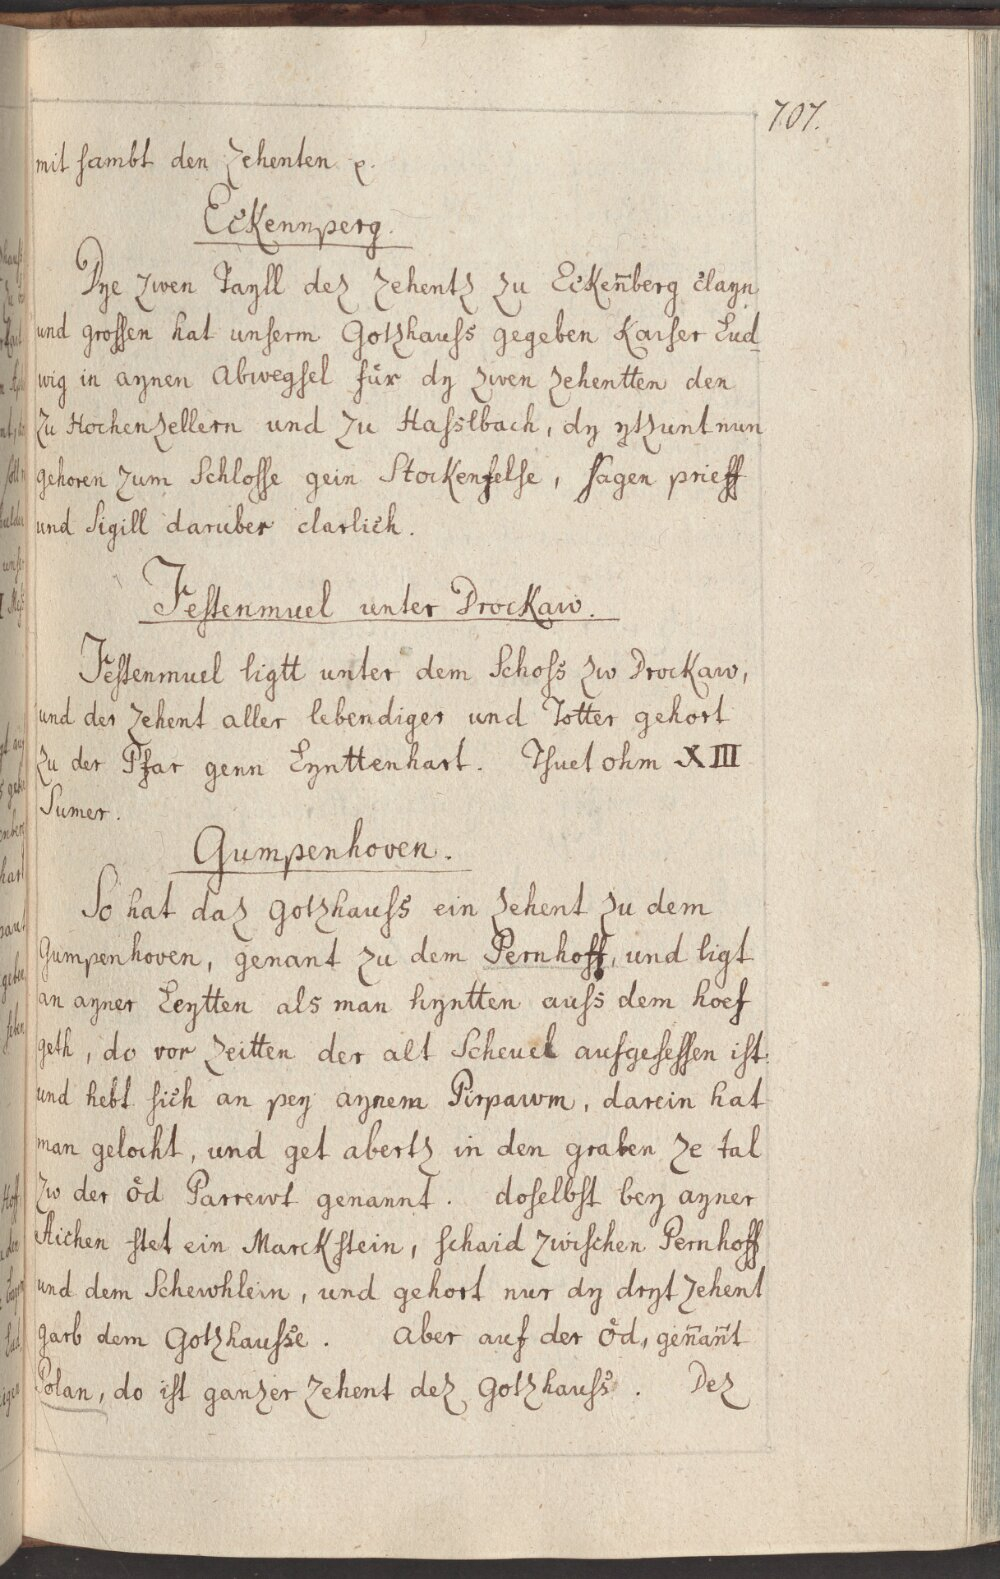 707.
mit sambt den Zehenten ꝛc.
Eckennperg.
Dye zwen Tayll dez Zehentz zu Ecken̄berg clayn
und grossen hat unserm Gotzhauss gegeben Kaiser Lud_
wig in aynen Abwegsel für dy zwen Zehentten den
zu Hochenzellern und zu Hasslbach, dy ytzunt nun
gehoren zum Schlosse gein Stockenfelse, sagen prieff
und Sigill daruber clarlich.
Festenmuel unter Drockaw.
Festenmuel ligtt unter dem Schoss zw Drockaw,
und der Zehent aller lebendiger und Totter gehort
zu der Pfar genn Lynttenhart. Thuet ohm XIII
Sumer.
Gumpenhoven.
So hat daz Gotzhauss ein Zehent zu dem
Gumpenhoven, genant zu dem Pernhoff, und ligt
an ayner Leytten als man hyntten auss dem hoef
geth, do vor Zeitten der alt Scheuel aufgesessen ist
und hebt sich an pey aynem Pirpawm, darein hat
man gelocht, und get abertz in den graben ze tal
zw der öd Parrewt genannt. doselbst bey ayner
Aichen stet ein Marckstein, schaid zwischen Pernhoff
und dem Schewhlein, und gehort nur dy dryt Zehent
garb dem Gotzhausse. Aber auf der öd, gen̄an̄t
Polan, do ist ganzer Zehent dez Gotzhauss. Dez